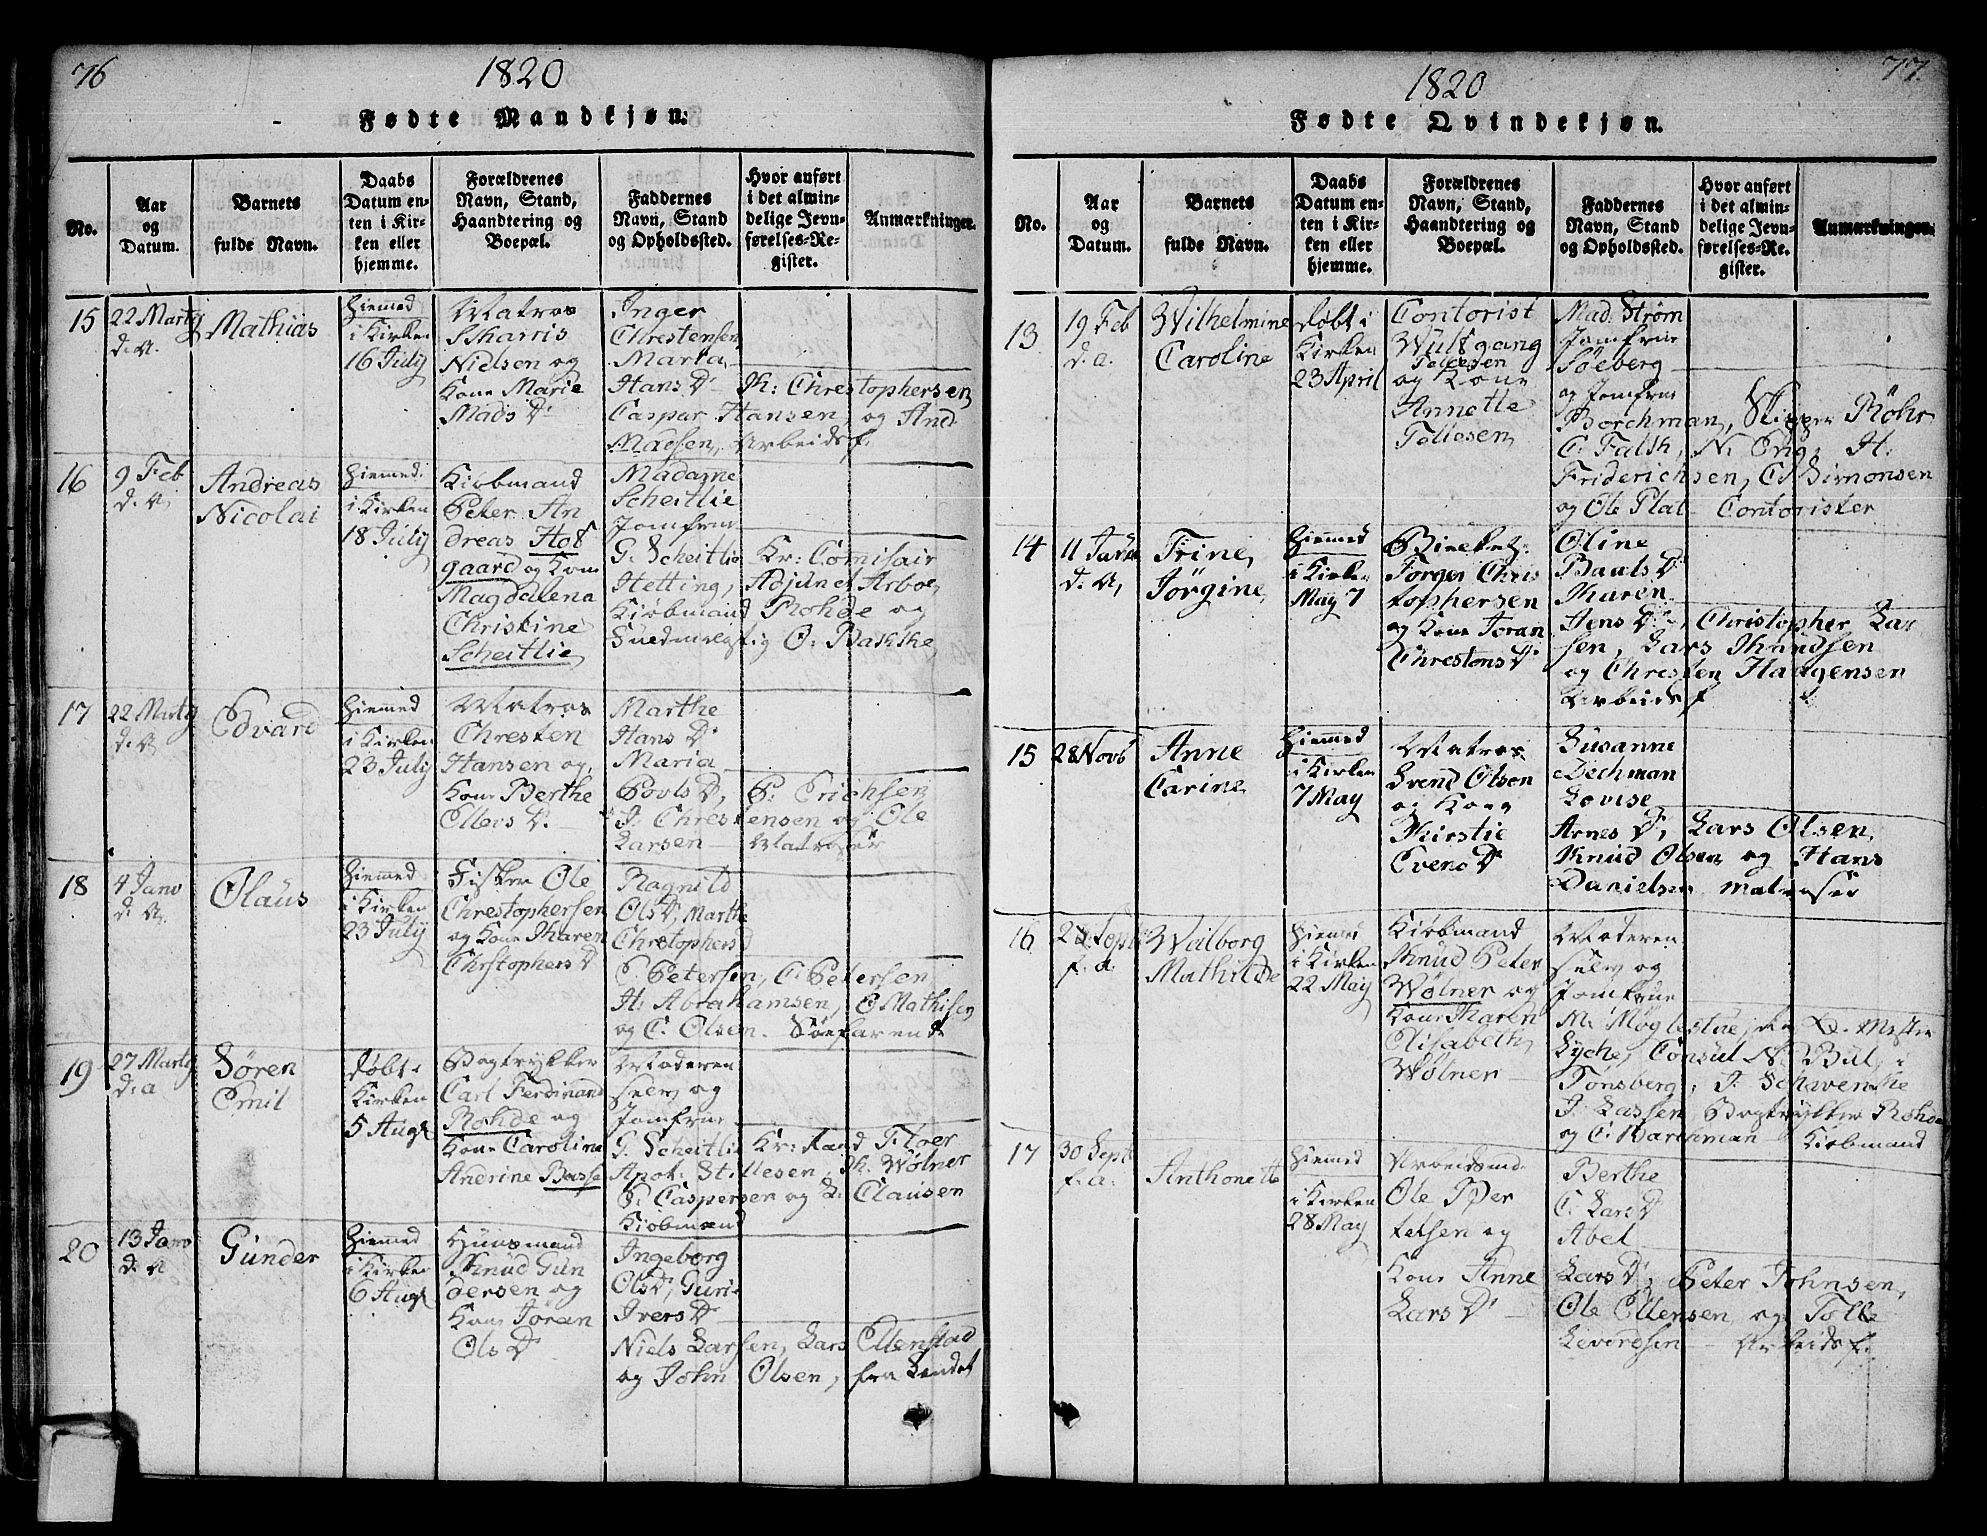 76
1820
Fødte Mandkjøn.
No.
Aar
og
Datum.
Barnets
fulde Navn.
Daabs
Datum en-
ten i Kir-
ken eller
hjemme.
Forældrenes
Navn, Stand,
Haandtering og
Boepæl.
Faddernes
Navn, Stand
og Opholdssted.
Hvor anført
i det almin-
delige Jevn-
førelses-Re-
gister.
Anmærkninger.
15
22 Marty
d. A.
Mathias
Hiemed
i Kirken
16 July
Matros
Harris
Nielsen og
Kone Marie
Mads D.
Inger
Chrestensen,
Maria
Hans D. K: Chrestophersen,
Caspar Hansen, og And
Madsen, Arbeidsf.
16
9 Feb
d. A,
Andreas
Nicolai
Hiemed
i Kirken
18 July
Kiøbmand
Peter An
dreas Hof
gaard og Kone
Magdalena
Christine
Scheitlie,
Madame
Scheitlie
Jomfrue
G. Scheitlie Kr: Comisair
Hetting, Adjunct Arboe,
Kiøbmand Rohde og
O: Bakke,
17
22 Marty
d. A
Edvard
Hiemed
i Kirken
23 July
Matros
Chresten
Hansen og,
Kone Berthe
Ellevs D.
Marthe
Hans D.
Maria
Povls D, P. Erichsen
J. Chrestensen og Ole
Larsen Matroser
18
4 Janv
d. A.
Olaus
Hiemed
i Kirken
23 July
Fisker Ole
Chrestophersen
og Kone Karen
Chrstophers D
Ragnild
Ols D, Marthe
Chrestophers D
P. Petersen, C. Petersen
H: Abrahamsen, C. Mathisen
og C. Olsen. Søefarende
19
27 Marty
d. a
Søren
Emil
døbt i
Kirken
5 Augs
Bogtrykker
Carl Ferdinand
Rohde og
Kone Caroline
Andrine Basse
Moderen
selv og
Jomfrue
G. Scheitlie Kr: Raad Floer
Apot. Stillesen, K. Wølner
P. Caspersen og L. Clausen
Kiøbmænd
20
13 Janv
d. A
Gunder
Hiemed
i Kirken
6 Augs
Huusmand
Knud Gun
dersen og
Kone Joran
Ols D
Ingeborg
Ols D, Guri
Ivers D
Niels Larsen, Lars Ellenstad
og John Olsen, fra Landet
77.
1820
Fødte Qvindekjøn.
No.
Aar
og
Datum.
Barnets
fulde Navn.
Daabs
Datum en-
ten i Kir-
ken eller
hjemme.
Forældrenes
Navn, Stand,
Haandtering og
Boepæl.
Faddernes
Navn, Stand
og Opholdssted.
Hvor anført
i det almin-
delige Jevn-
førelses-Re-
gister.
Anmærkninger.
13
19 Feb
d. a.
Wilhelmine
Caroline
døbt i
Kirken
23 April
Contorist
Wulfgang
Tellesen
og Kone
Annette
Tellesen,
Mad. Strøm
Jomfrue
Søeberg
og Jomfrue
Borchman, Skipper Røhr
C. Falth, N. Eng, H.
Friderichsen, C. Simonsen
og Ole Plat Contorister
14
11 Janv
d. A,
Trine,
Jørgine,
Hiemed
i Kirken
May 7
Torger Chris
tophersen
og Kone Joran
Chrestens D
Oline
Pauls D
Karen
Jens D, Christopher Lar
sen, Lars Knudsen
og Chresten Haagensen
Arbeidsf
15
28 Novb
Anne
Carine,
Hiemed
i Kirken
7 May
Matros
Svend Olsen
og Kone
Kirstie
Evens D
Susanne
Dechman
Lovise,
Arnes D, Lars Olsen,
Knud Olsen og Hans
Danielsen Matroser
16
Septb
f. a.
Walborg
Mathilde
Hiemed
i Kirken
22 May
Kiøbmand
Knud Peter
Wølner og
Kone Karen
Elisabeth,
Wølner
Moderen
selv og
Jomfrue
M: Møglestue,
Lyche, Consul N. Bul, i
Tønsberg, J. Schavenke
J. Lassen, Bogtrykker Rohde
og C. Barchman Kiøbmand
17
30 Septb
f. a.
Anthonette
Hiemed
i Kirken
28 May
Arbeidsmd.
Ole Pder
telsen og
Kone Anne
Lars D
Berthe
C. Lars D
Abel
Lars D, Peter Johnsen,
Ole Ellensen og Tolle
Levordsen Arbeidsf.